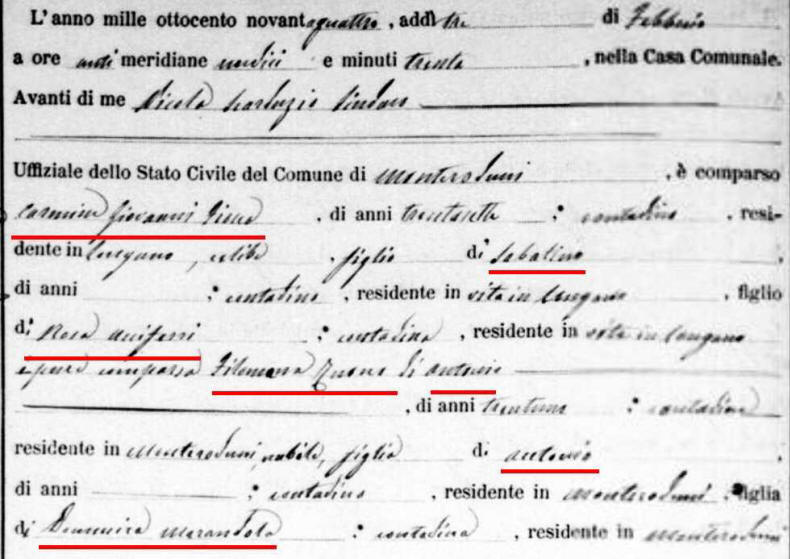 L'anno mille ottocento novantaquattro, addì tre di Febbraio
a ore anti meridiane undici e minuti trenta, nella Casa Comunale.
Avanti di me Nicola Sindaco
Uffiziale dello Stato Civile del Comune di Monteroduni, è comparso
Carmine Giovanni, di anni trentasette : contadino, resi-
dente in Longano, celibe, figlio di Sabatino,
di anni : contadino, residente in vita in Longano, figlio
di Rosa : contadina, residente in vita in Longano
e pure comparsa Filomena di Antonio
, di anni trentuno : contadina
residente in Monteroduni, nubile, figlia di Antonio,
di anni : contadino, residente in Monteroduni figlia
di Domenica Marandola : contadina, residente in Monteroduni